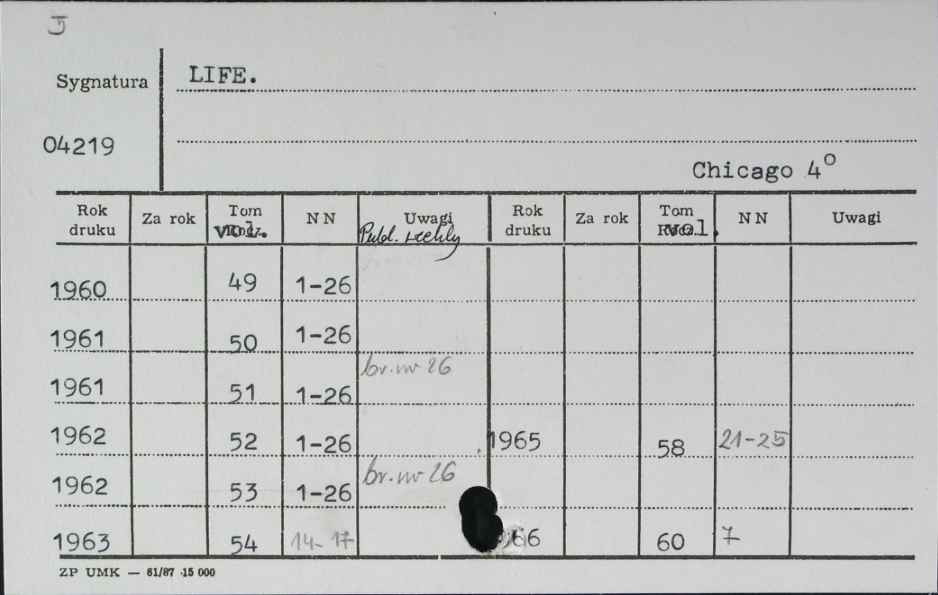 J
Sygnatura LIFE.
04219
Chicago 4°
Rok druku Za rok Tom vol. NN Uwagi Publ. weekly Rok druku Za rok Tom vol. NN Uwagi
1960 49 1-26
1961 50 1-26
br. nr 26
1961 51 1-26
1962 52 1-26 1965 58 21-25
br. nr 26
1962 53 1-26
1963 54 14-17 66 60 7
ZP UMK — 61/87 ·15 000